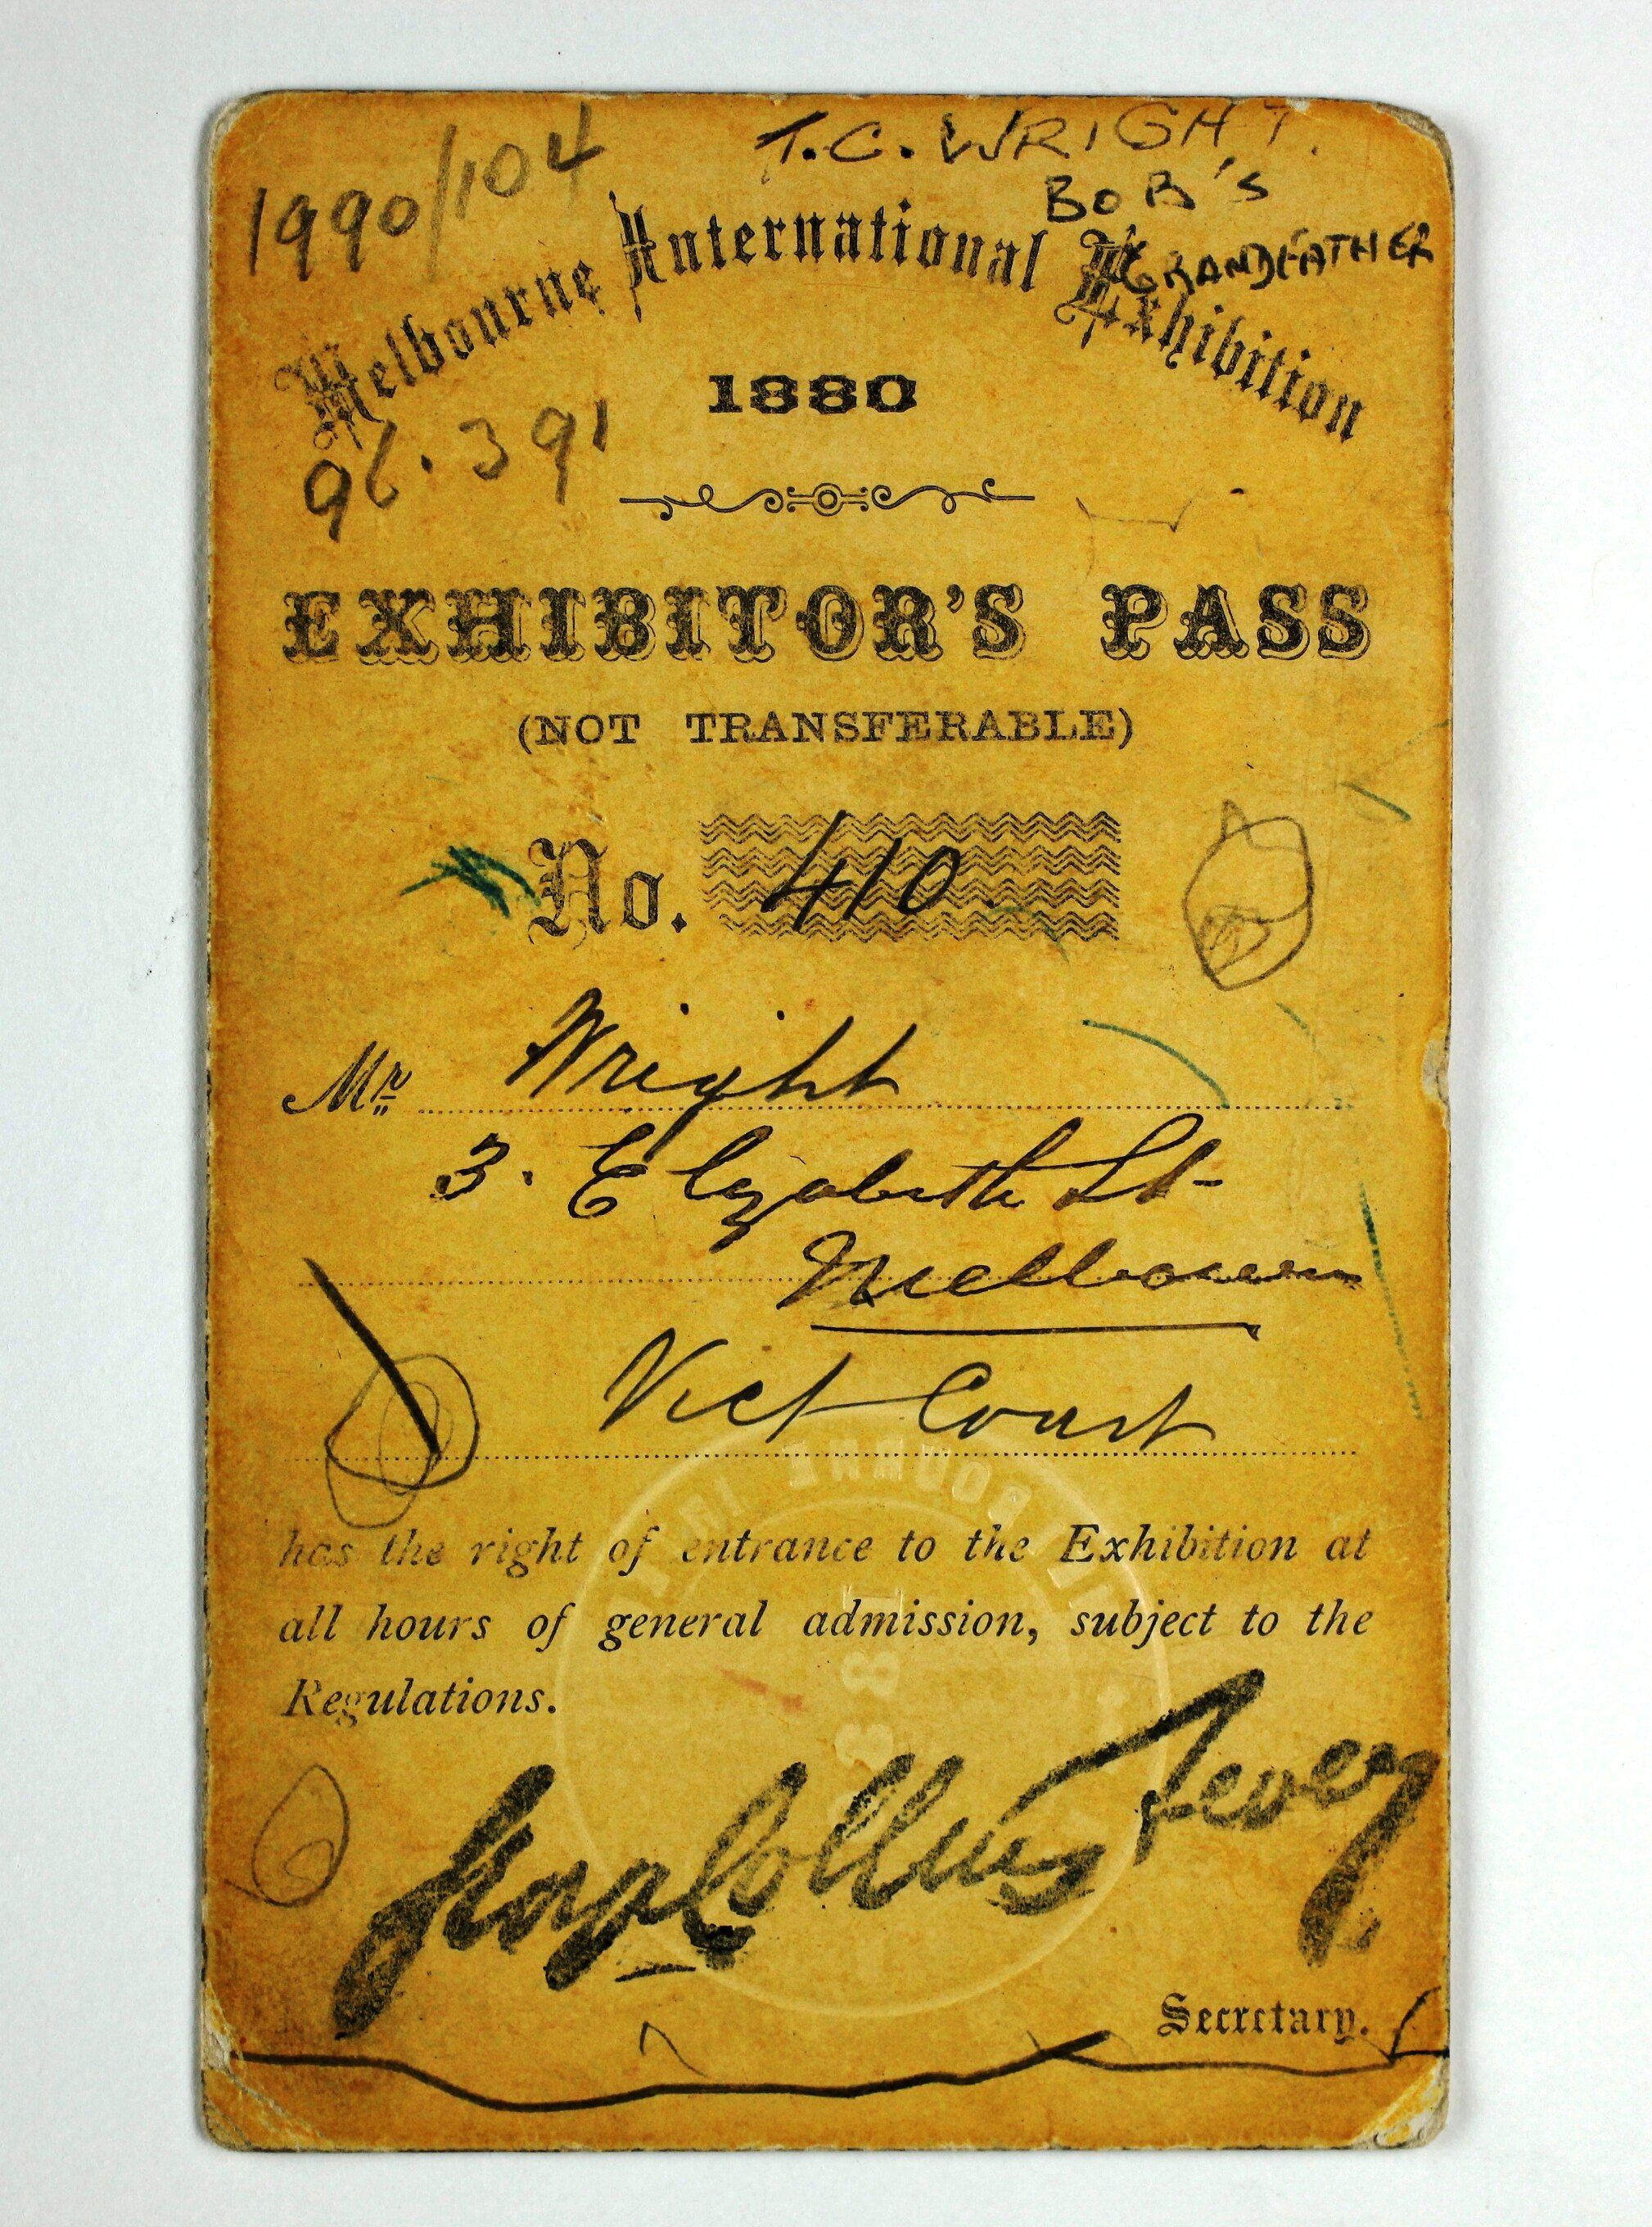 1990/104
T.C. WRIGHT.
BOB'S
GRANDFATHER
Melbourne International Exhibition
1880
96.391
EXHIBITOR'S PASS
(NOT TRANSFERABLE)
No. 410
Mr Wright
3. Elizabeth St
Melbourne
Vict Court
has the right of entrance to the Exhibition at
all hours of general admission, subject to the
Regulations.
Collins Levey
Secretary.